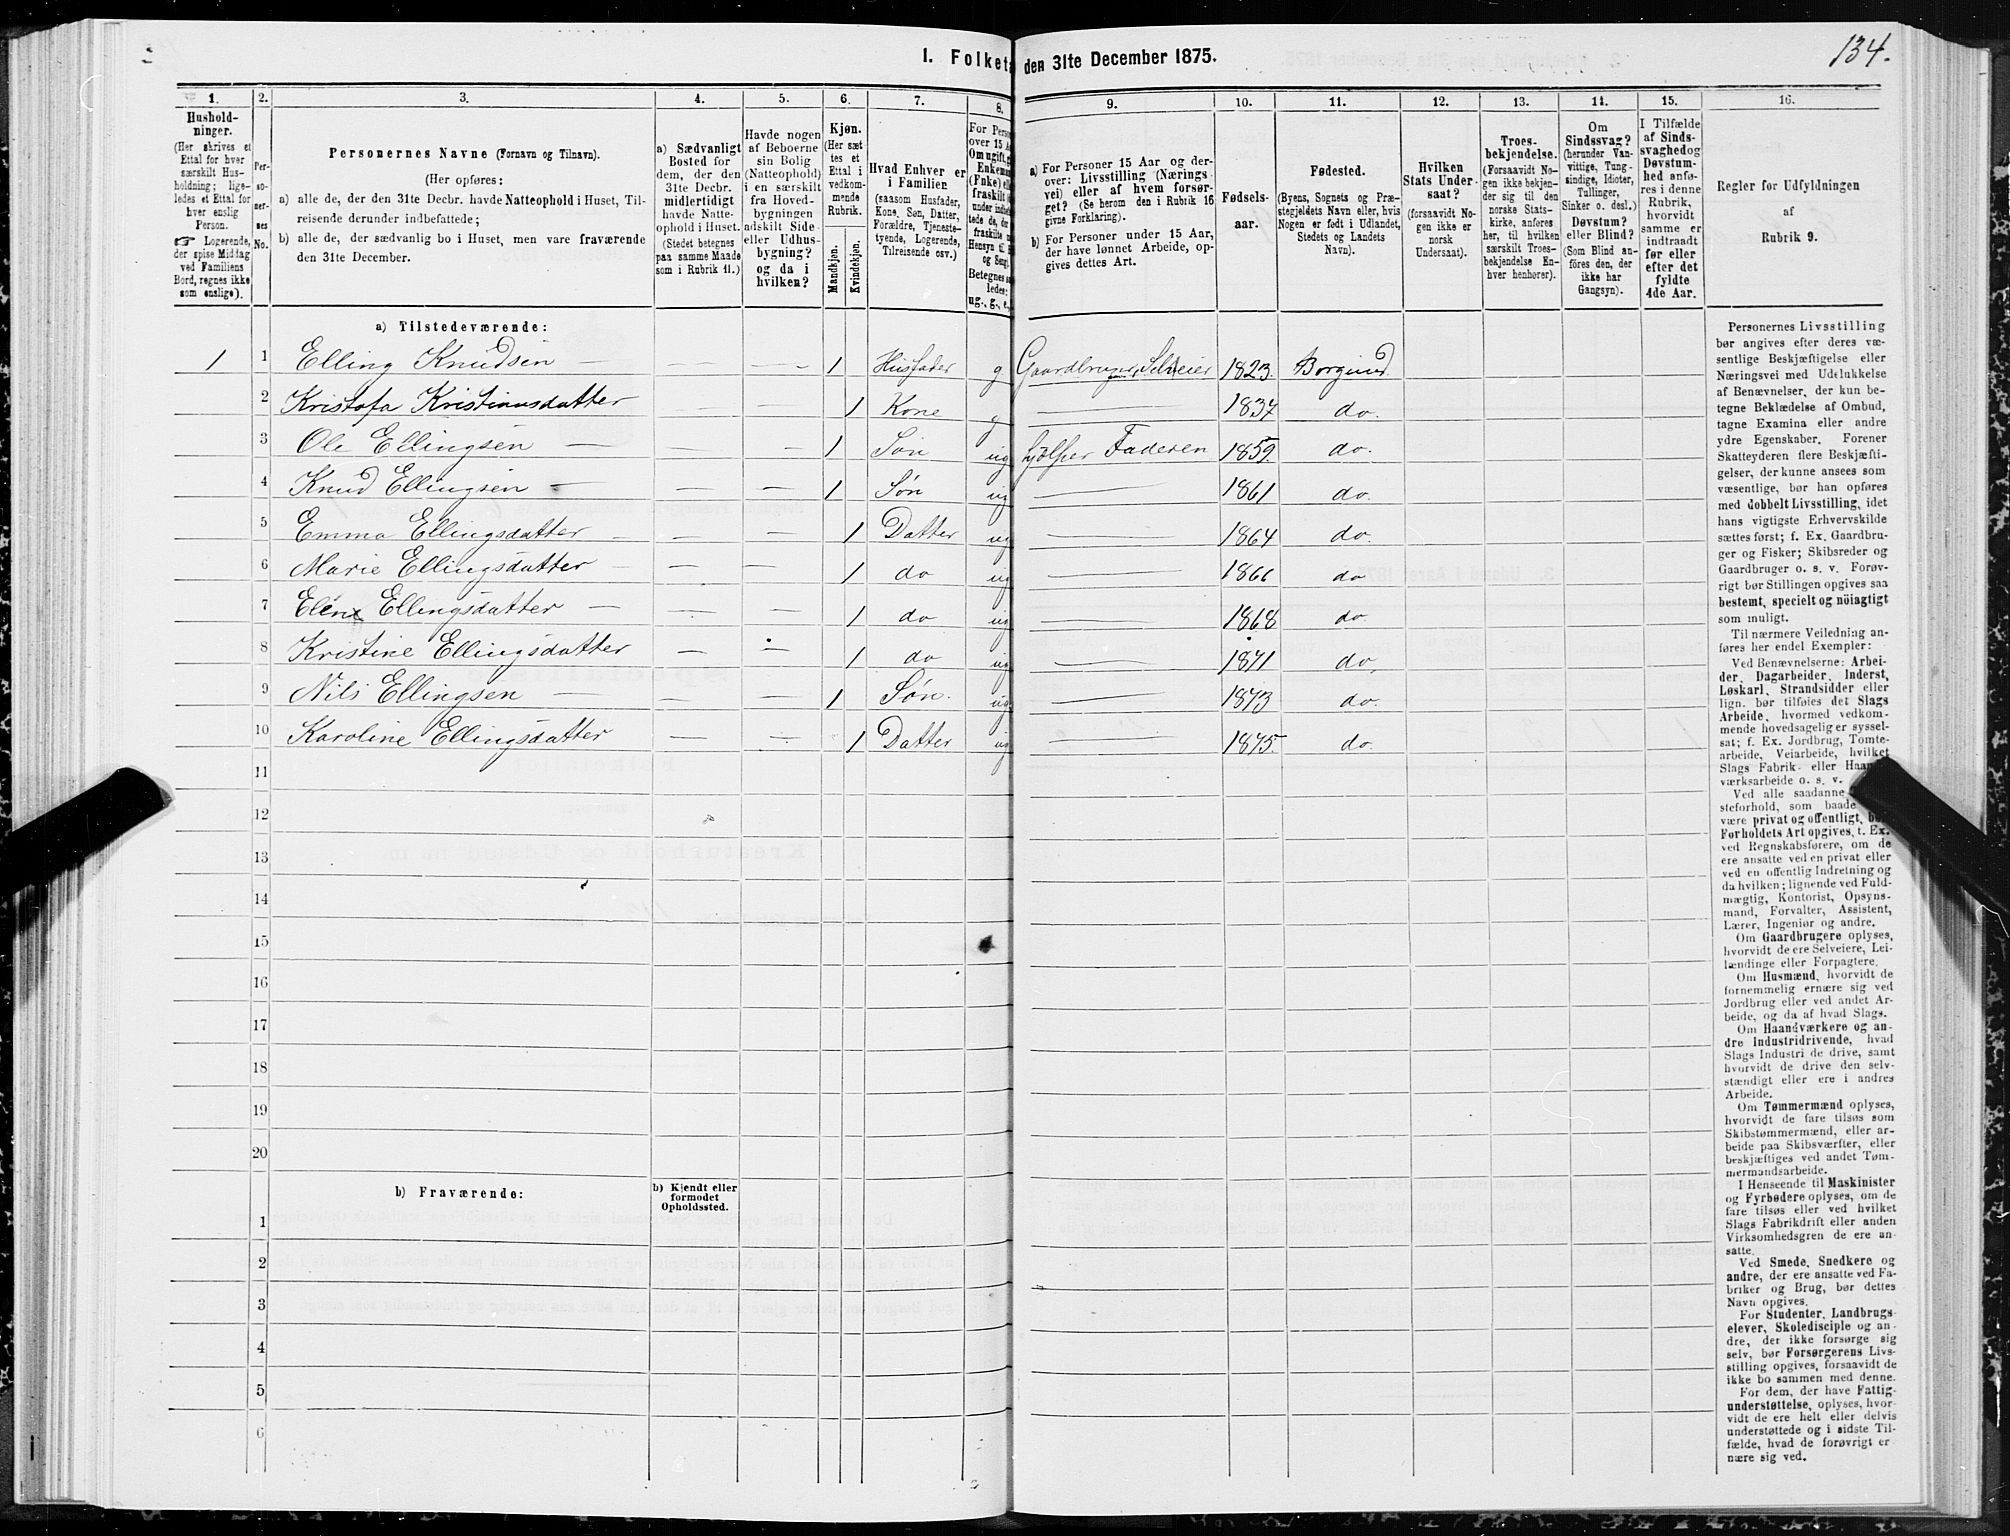 I. Folketa
den 31te December 1875.
134.
1.
2.
3.
4.
5.
6.
7.
8.
9.
10.
11.
12.
13.
14.
15.
16.
Hushold-
ninger.
(Her skrives et
Ettal for hver
særskilt Hus-
holdning; lige-
ledes et Ettal for
hver enslig
Person.
☞ Logerende,
der spise Middag
ved Familiens
Bord, regnes ikke
som enslige).
Per-
so-
ner-
nes
No.
Personernes Navne (Fornavn og Tilnavn).
(Her opføres:
a) alle de, der den 31te Decbr. havde Natteophold i Huset, Til-
reisende derunder indbefattede;
b) alle de, der sædvanlig bo i Huset, men vare fraværende
den 31te December.
a) Sædvanligt
Bosted for
dem, der den
31te Decbr.
midlertidigt
havde Natte-
ophold i Huset.
(Stedet betegnes
paa samme Maade
som i Rubrik 11.)
Havde nogen
af Beboerne
sin Bolig
(Natteophold)
i en særskilt
fra Hoved-
bygningen
adskilt Side-
eller Udhus-
bygning?
og da i
hvilken?
Kjøn.
(Her sæt-
tes et
Ettal i
vedkom-
mende
Rubrik.
Mandkjøn.
Kvindekjøn.
Hvad Enhver er
i Familien
(saasom Husfader,
Kone, Søn, Datter,
Forældre, Tjeneste-
tyende, Logerende,
Tilreisende osv.)
For Perso
over 15 A
Om ugift, g
Enkem
(Enke) e
fraskilt
under indb
tede de, de
fraskilte
Hensyn til
og Seng
Betegnes s
ledes:
ug., g., e.
a) For Personer 15 Aar og der-
over: Livsstilling (Nærings
vei) eller af hvem forsør-
get? (Se herom den i Rubrik 16
givne Forklaring).
b) For Personer under 15 Aar,
der have lønnet Arbeide, op-
gives dettes Art.
Fødsels-
aar.
Fødested.
(Byens, Sognets og Præ-
stegjeldets Navn eller, hvis
Nogen er født i Udlandet,
Stedets og Landets
Navn).
Hvilken
Stats Under-
saat?
(forsaavidt No-
gen ikke er
norsk
Undersaat).
Troes-
bekjendelse.
(Forsaavidt No-
gen ikke bekjen-
der sig til den
norske Stats-
kirke, anføres
her, til hvilken
særskilt Troes-
bekjendelse En-
hver henhører).
Om
Sindssvag?
(herunder Van-
vittige, Tung-
sindige, Idioter,
Tullinger,
Sinker o. desl.)
Døvstum?
eller Blind?
(Som Blind an-
føres den, der
ikke har
Gangsyn).
I Tilfælde
af Sinds-
svaghed og
Døvstum-
hed anfø-
res i denne
Rubrik,
hvorvidt
samme er
indtraadt
før eller
efter det
fyldte
4de Aar.
Regler for Udfyldningen
af
Rubrik 9.
a) Tilstedeværende:
1 1 Elling Knudsen — — — 1 Husfader g Gaardbruger, Selveier 1823. Borgund
2 Kristofa Kristiansdatter — — 1 Kone g — 1837 do.
3 Ole Ellingsen — — — 1 Søn ug hjælper Faderen 1859. do.
4 Knud Ellingsen — — — 1 Søn ug — 1861 do.
5 Emma Ellingsdatter — — — 1 Datter ug — 1864 do.
6 Marie Ellingsdatter — — — 1 do ug — 1866 do
7 Eline Ellingsdatter — — — 1 do ug — 1868 do
8 Kristine Ellingsdatter — — 1 do ug — 1871 do,
9 Nils Ellingsen — — — 1 Søn. ug — 1873 do.
10 Karoline Ellingsdatter — — 1 Datter ug — 1875. do.
11
12
13
14
15
16
17
18
19
20
b) Fraværende:
b) Kjendt eller
formodet
Opholdssted.
1
2
3
4
5
6
Personernes Livsstilling
bør angives efter deres væ-
sentlige Beskjæftigelse eller
Næringsvei med Udelukkelse
af Benævnelser, der kun be-
tegne Beklædelse af Ombud,
tagne Examina eller andre
ydre Egenskaber. Forener
Skatteyderen flere Beskjæfti-
gelser, der kunne ansees som
væsentlige, bør han opføres
med dobbelt Livsstilling, idet
hans vigtigste Erhvervskilde
sættes først; f. Ex. Gaardbru-
ger og Fisker; Skibsreder og
Gaardbruger o. s. v. Forøv-
rigt bør Stillingen opgives saa
bestemt, specielt og nöiagtigt
som muligt.
Til nærmere Veiledning an-
føres her endel Exempler:
Ved Benævnelserne: Arbei-
der, Dagarbeider, Inderst,
Løskarl, Strandsidder eller
lign. bør tilføies det Slags
Arbeide, hvormed vedkom-
mende hovedsagelig er syssel-
sat; f. Ex. Jordbrug, Tomte-
arbeide, Veiarbeide, hvilket
Slags Fabrik- eller Haan
værksarbeide o. s. v.
Ved alle saadanne
steforhold, som baade
være privat og offentlig, bø
Forholdets Art opgives, t. Ex.
ved Regnskabsførere, om de
ere ansatte ved en privat eller
ved en offentlig Indretning og
da hvilken; lignende ved Fuld-
mægtig, Kontorist, Opsyns-
mand, Forvalter, Assistent,
Lærer, Ingeniør og andre.
Om Gaardbrugere oplyses,
hvorvidt de ere Selveiere, Lei-
lændinge eller Forpagtere.
Om Husmænd, hvorvidt de
fornemmelig ernære sig ved
Jordbrug eller ved andet Ar-
beide, og da af hvad Slags.
Om Haandværkere og an-
dre Industridrivende, hvad
Slags Industri de drive, samt
hvorvidt de drive den selv-
stændigt eller ere i andres
Arbeide.
Om Tømmermænd oplyses,
hvorvidt de fare tilsøs som
Skibstømmermænd, eller ar-
beide paa Skibsværfter, eller
beskjæftiges ved andet Tøm-
mermandsarbeide.
I Henseende til Maskinister
og Fyrbødere oplyses, om de
fare tilsøs eller ved hvilket
Slags Fabrikdrift eller anden
Virksomhedsgren de ere an-
satte.
Ved Smede, Snedkere og
andre, der ere ansatte ved Fa-
briker og Brug, bør dettes
Navn opgives.
For Studenter, Landbrugs-
elever, Skoledisciple og an-
dre, der ikke forsørge sig
selv, bør Forsørgerens Livs-
stilling opgives, forsaavidt de
ikke bo sammen med denne.
For dem, der have Fattig-
understøttelse, oplyses, hvor-
vidt de ere helt eller delvis
understøttede og i sidste Til-
fælde, hvad de forøvrigt er-
nære sig ved.